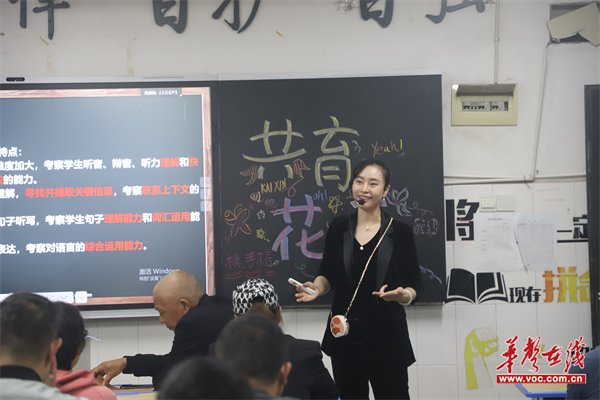 特点：
难度加大，考察学生听音、辩音、听力理解和快
的能力。
理解，寻找并提取关键信息，考察联系上下文的
句子听写，考察学生句子理解能力和词汇运用能
表达，考察对语言的综合运用能力。
激活 Windows
共育
Yeah!
KAI XIN
花
桃李
将 一定
现在 拼
华声在线
www.voc.com.cn